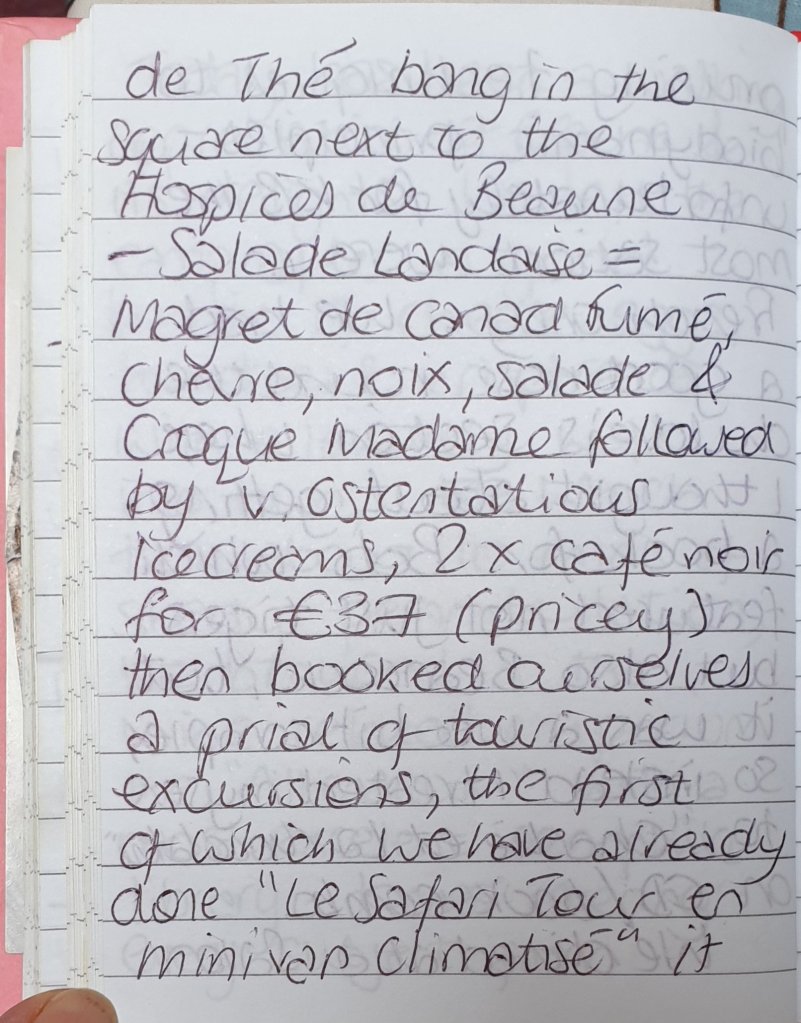 de Thé bang in the
square next to the
Hospices de Beaune
- Salade Landaise =
Magret de canad fumé,
chèvre, noix, salade &
Croque Madame followed
by v. ostentatious
icecreams, 2 x café noir
for €37 (pricey)
then booked ourselves
a prial of touristic
excursions, the first
of which we have already
done "Le Safari Tour en
minivan climatisé" it